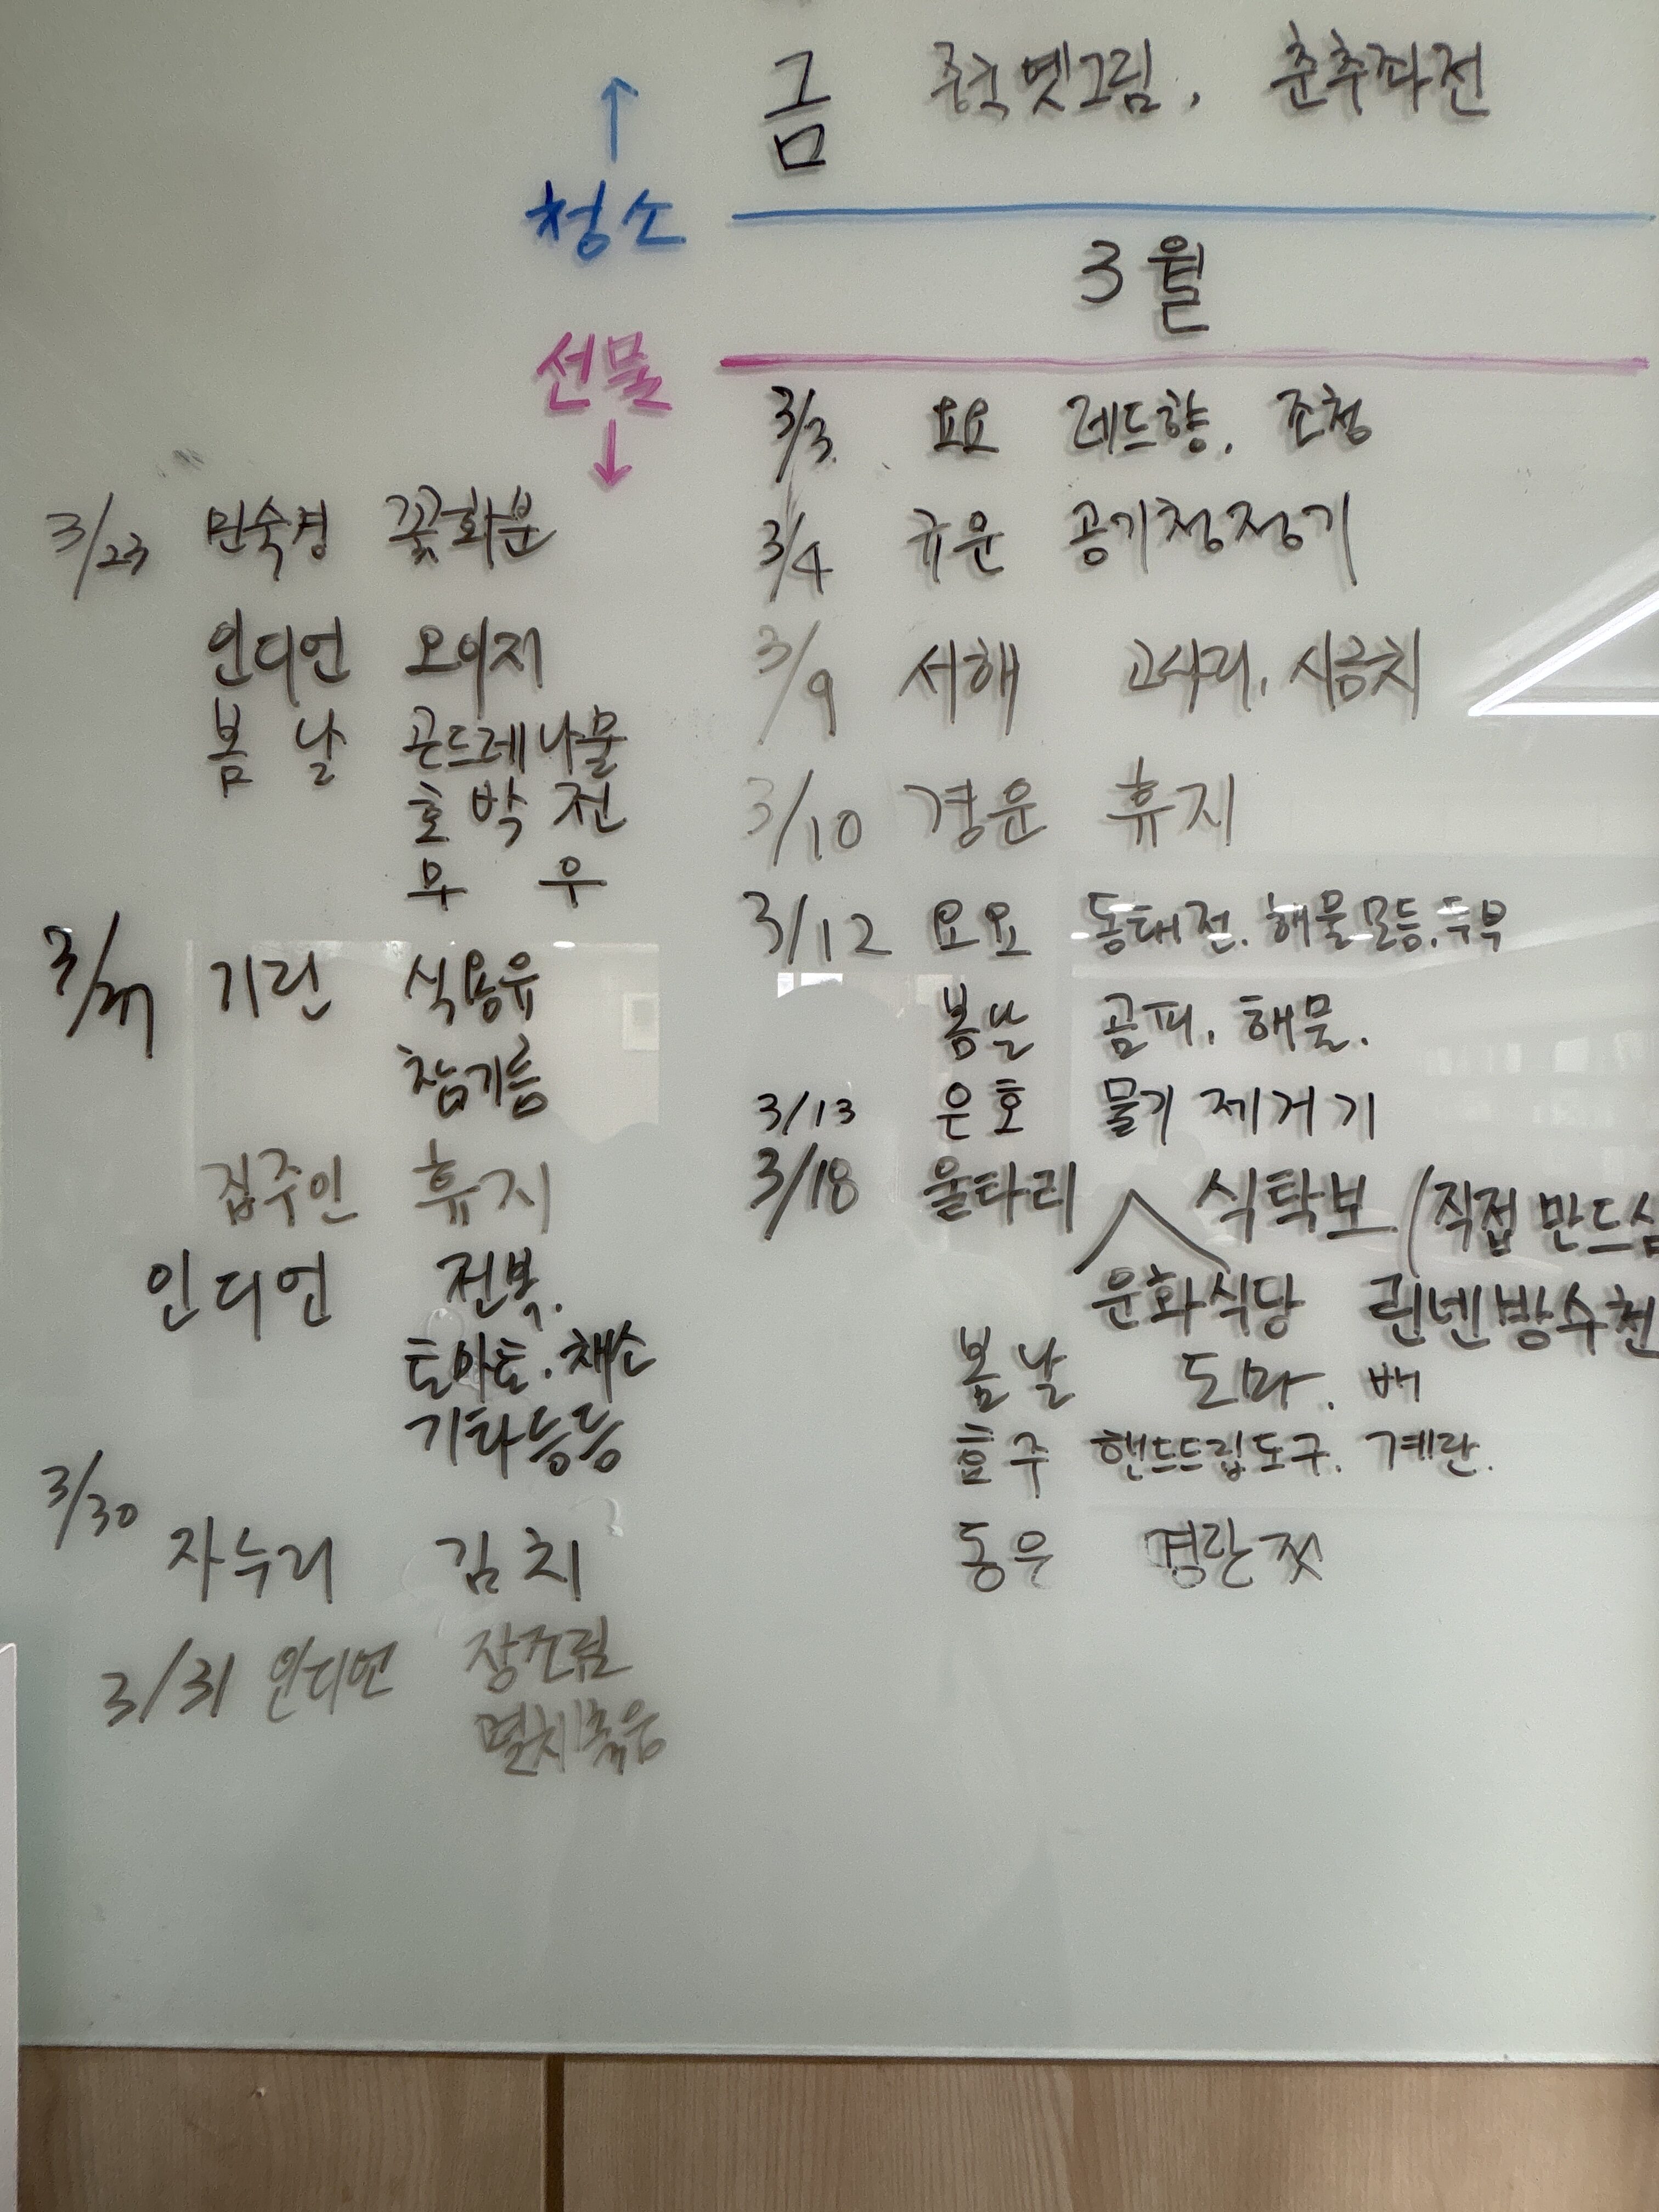 금 중국옛그림, 춘추좌전
청소
3월
선물
3/3 요요 레드향, 조청
3/4 규운 공기청정기
3/9 서해 고사리, 시금치
3/10 경운 휴지
3/12 요요 동태전, 해물모듬, 두부
봄날 곰피, 해물.
3/13 은호 물기제거기
3/18 울타리 식탁보 (직접 만드심
문화식당 린넨방수천
봄날 도마, 배
효주 핸드드립도구, 계란.
동은 명란젓
3/23 민숙경 꽃화분
인디언 오이지
봄날 곤드레나물
호박전
무우
3/27 기린 식용유
참기름
집주인 휴지
인디언 전복.
토마토. 채소
기타등등
3/30
자누리 김치
3/31 인디언 장조림
멸치볶음